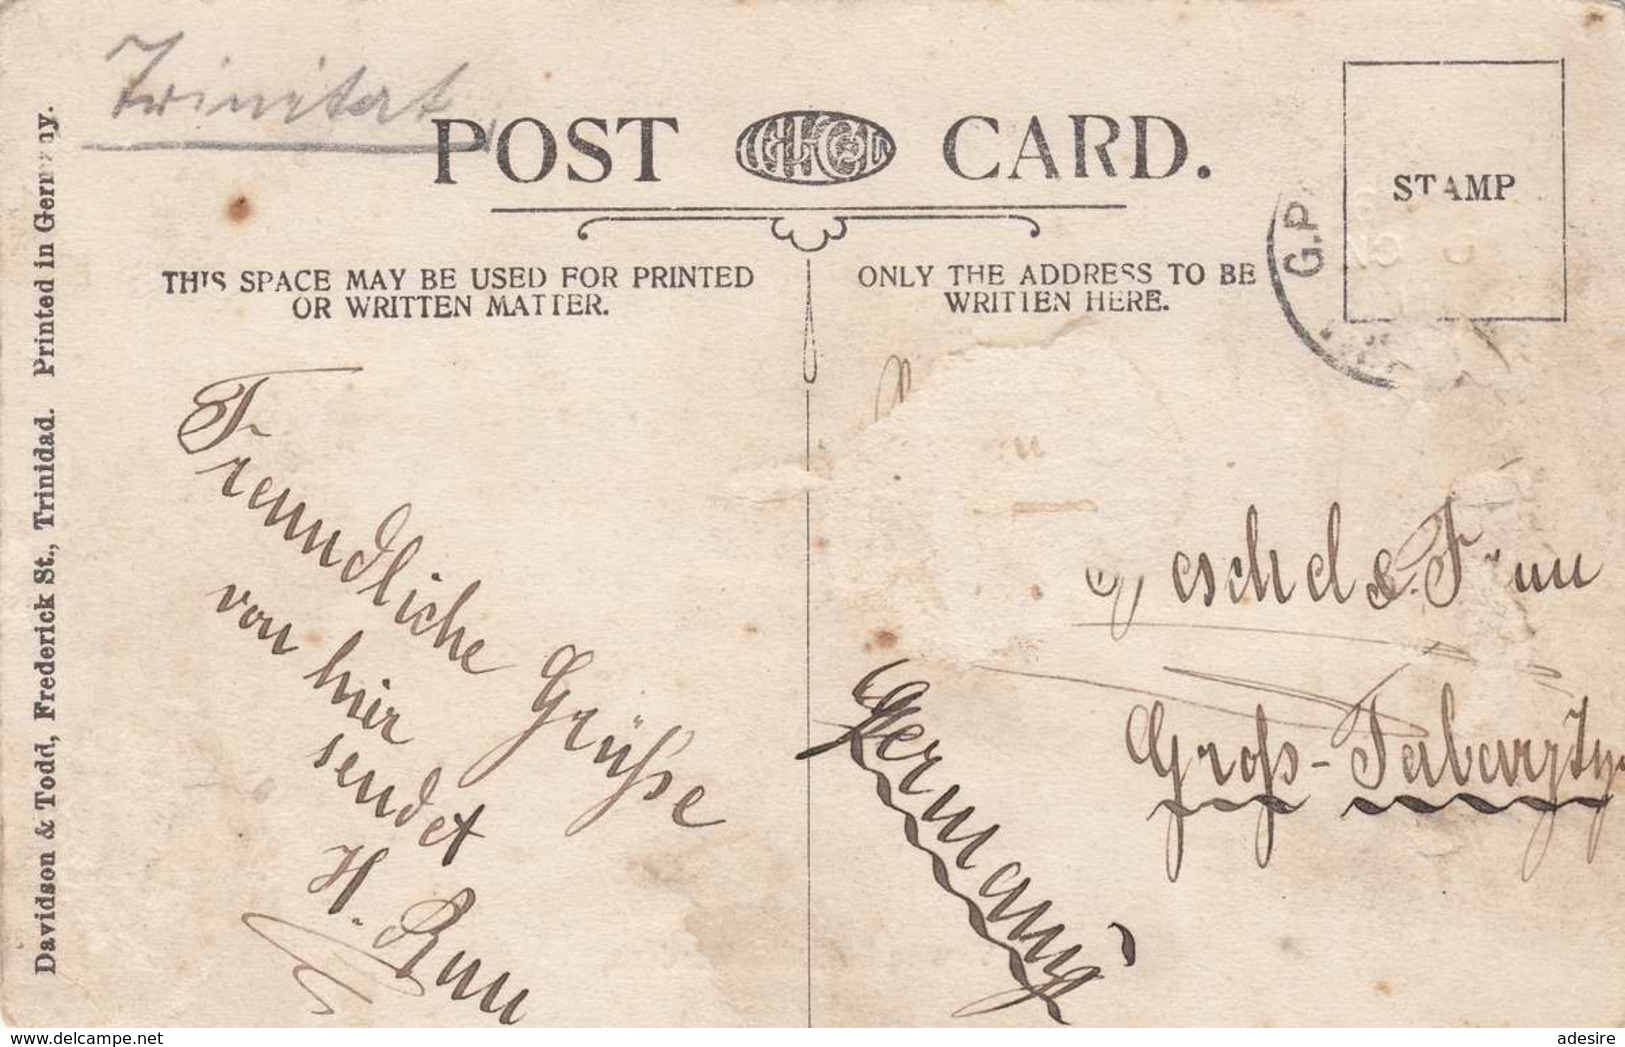 Trinitat
POST CARD.
STAMP
G.P
THIS SPACE MAY BE USED FOR PRINTED
OR WRITTEN MATTER.
ONLY THE ADDRESS TO BE
WRITTEN HERE.
Davidson & Todd, Frederick St., Trinidad. Printed in Germany.
Freundliche Grüße
von hier
sendet
H. Rau
Groß-Tabarz
Germany
www.delcampe.net
adesire